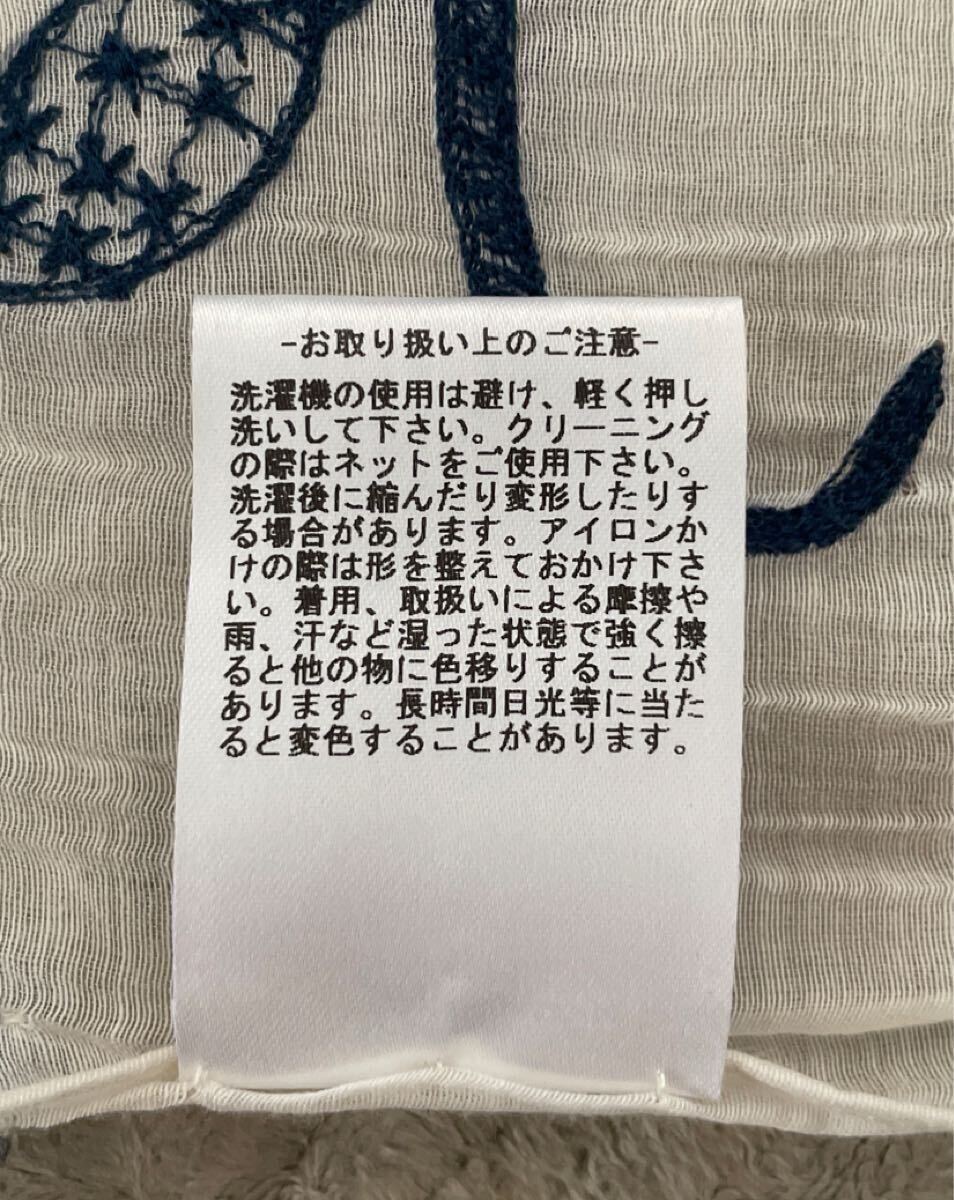 -お取り扱い上のご注意-
洗濯機の使用は避け、軽く押し
洗いして下さい。クリーニング
の際はネットをご使用下さい。
洗濯後に縮んだり変形したりす
る場合があります。アイロンか
けの際は形を整えておかけ下さ
い。着用、取扱いによる摩擦や
雨、汗など湿った状態で強く擦
ると他の物に色移りすることが
あります。長時間日光等に当た
ると変色することがあります。